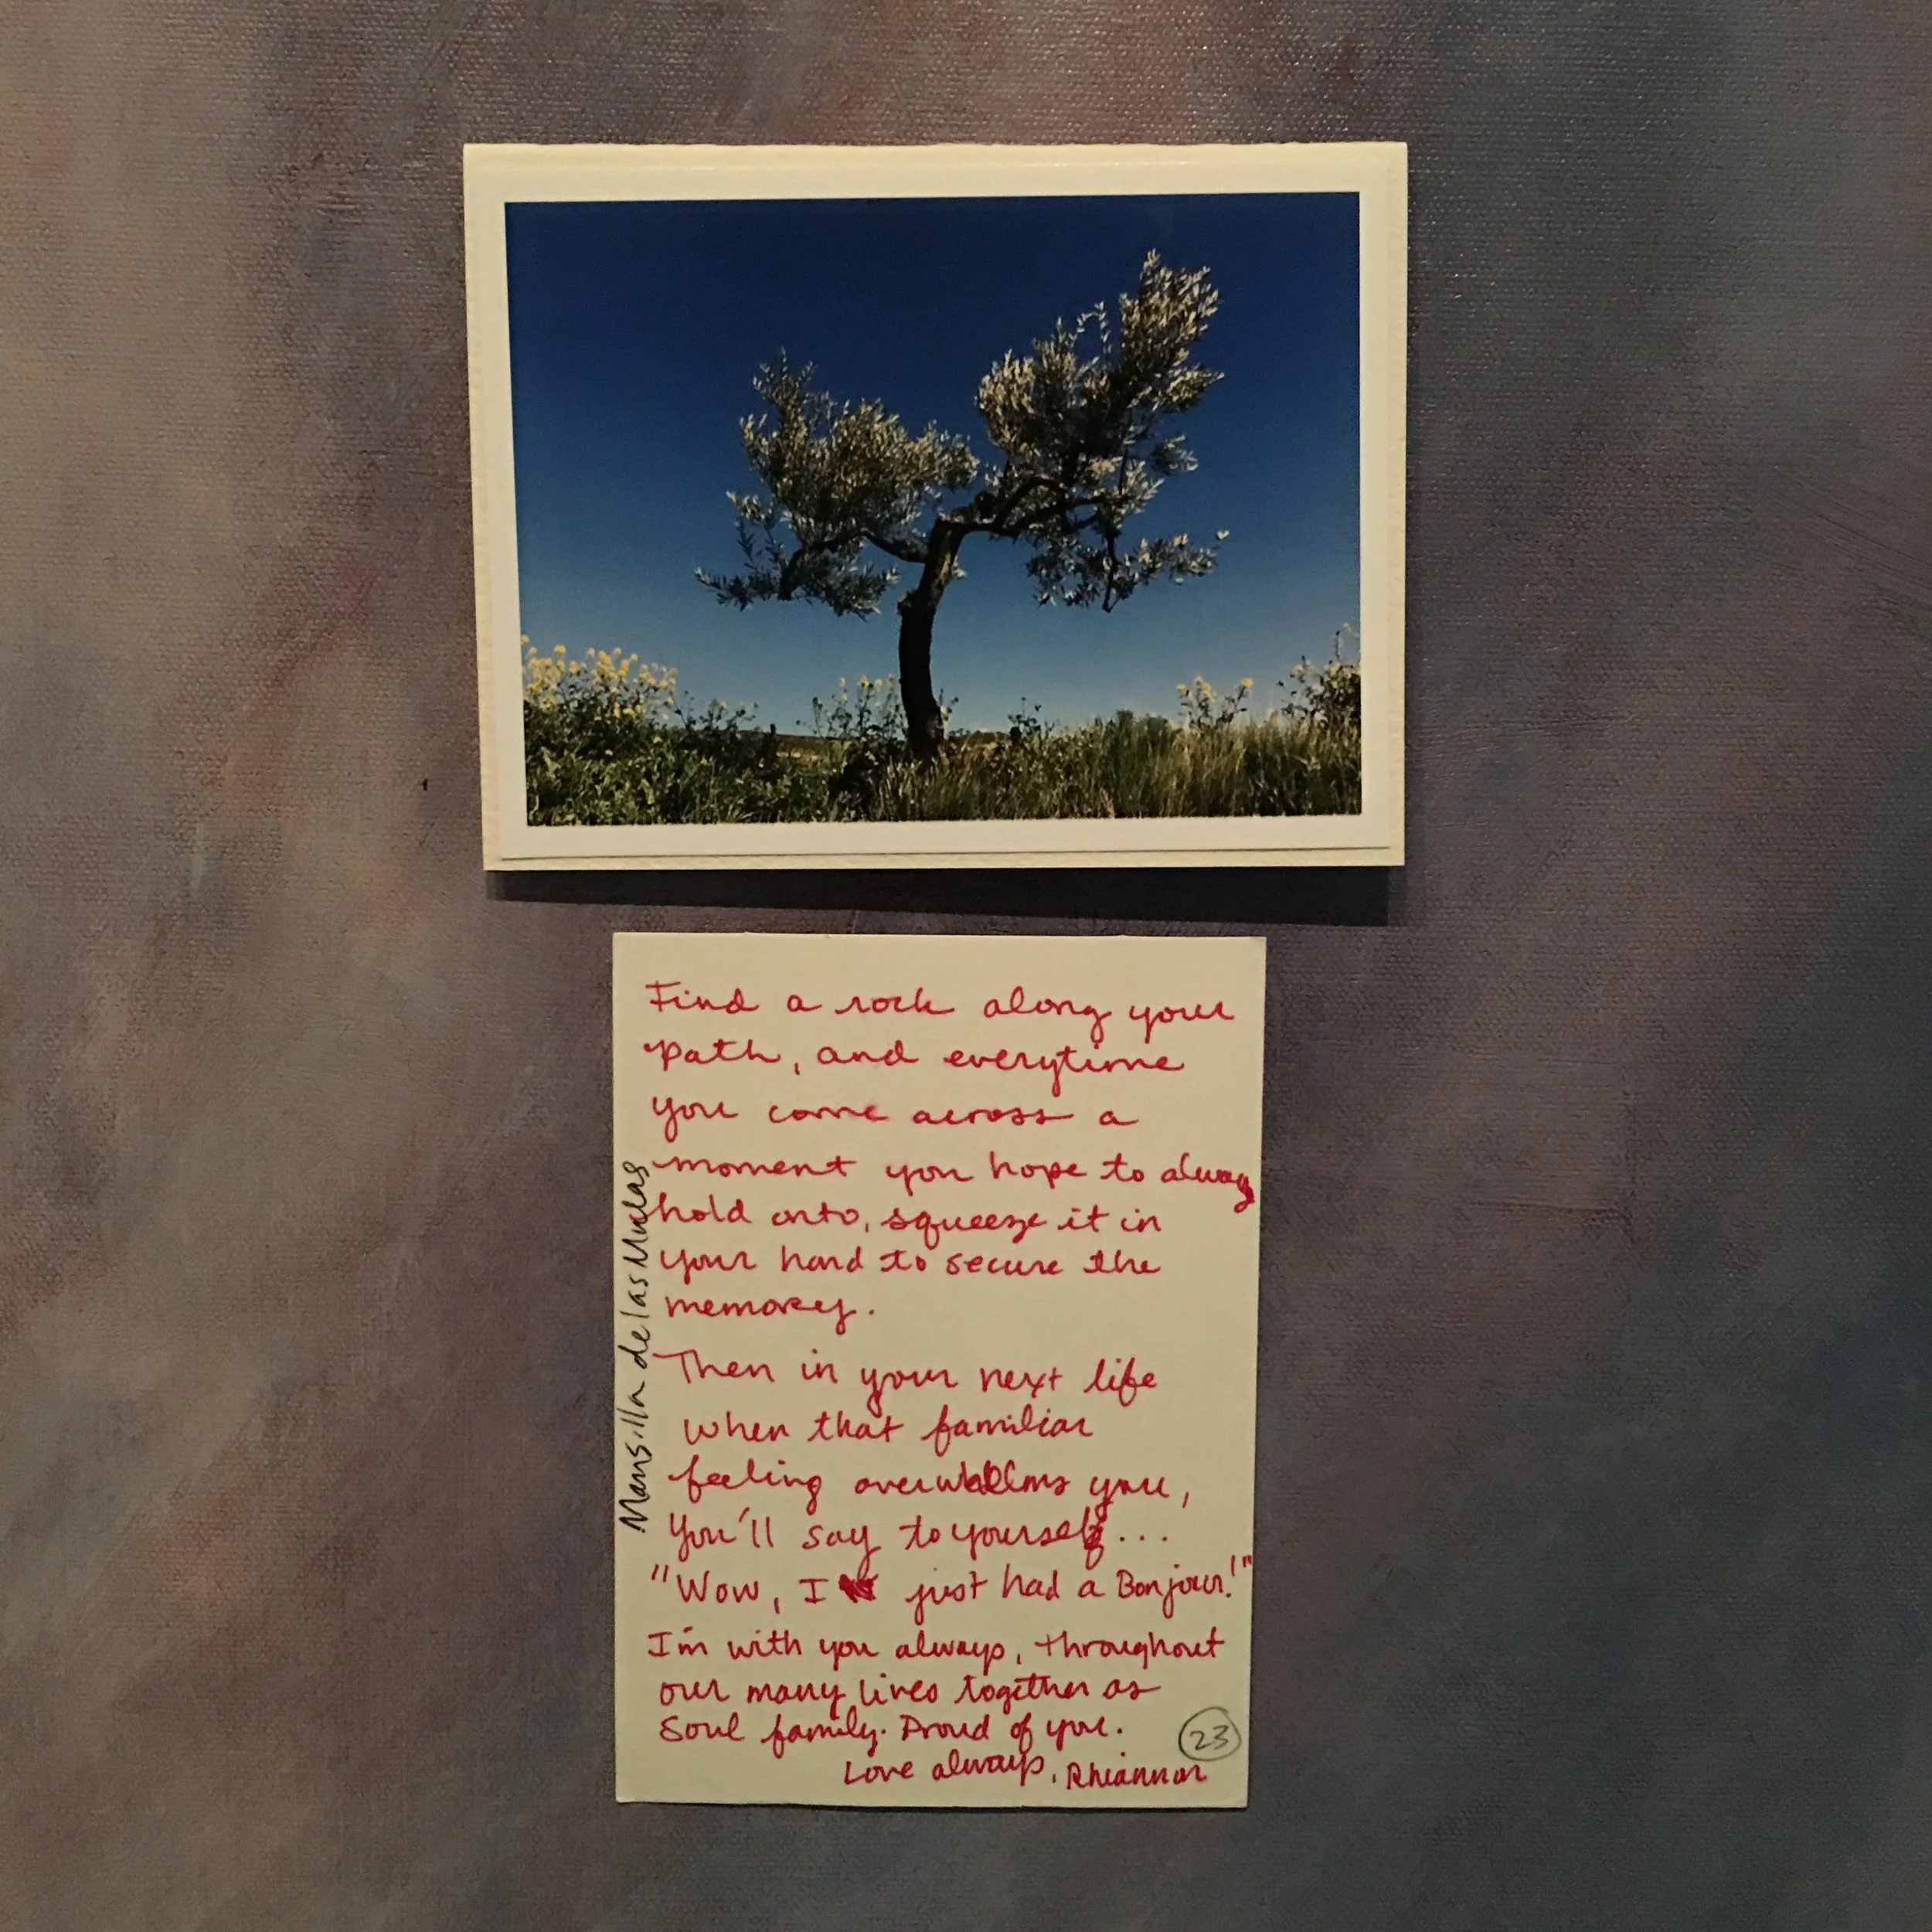 Find a rock along your
path, and everytime
you come across a
moment you hope to always
hold onto, squeeze it in
your hand to secure the
memory.
Then in your next life
when that familiar
feeling overwhelms you,
You'll say to yourself...
"Wow, I just had a Bonjour!"
I'm with you always, throughout
our many lives together as
Soul family. Proud of you.
Love always, Rhiannon
23
Mansilla de las Mulas